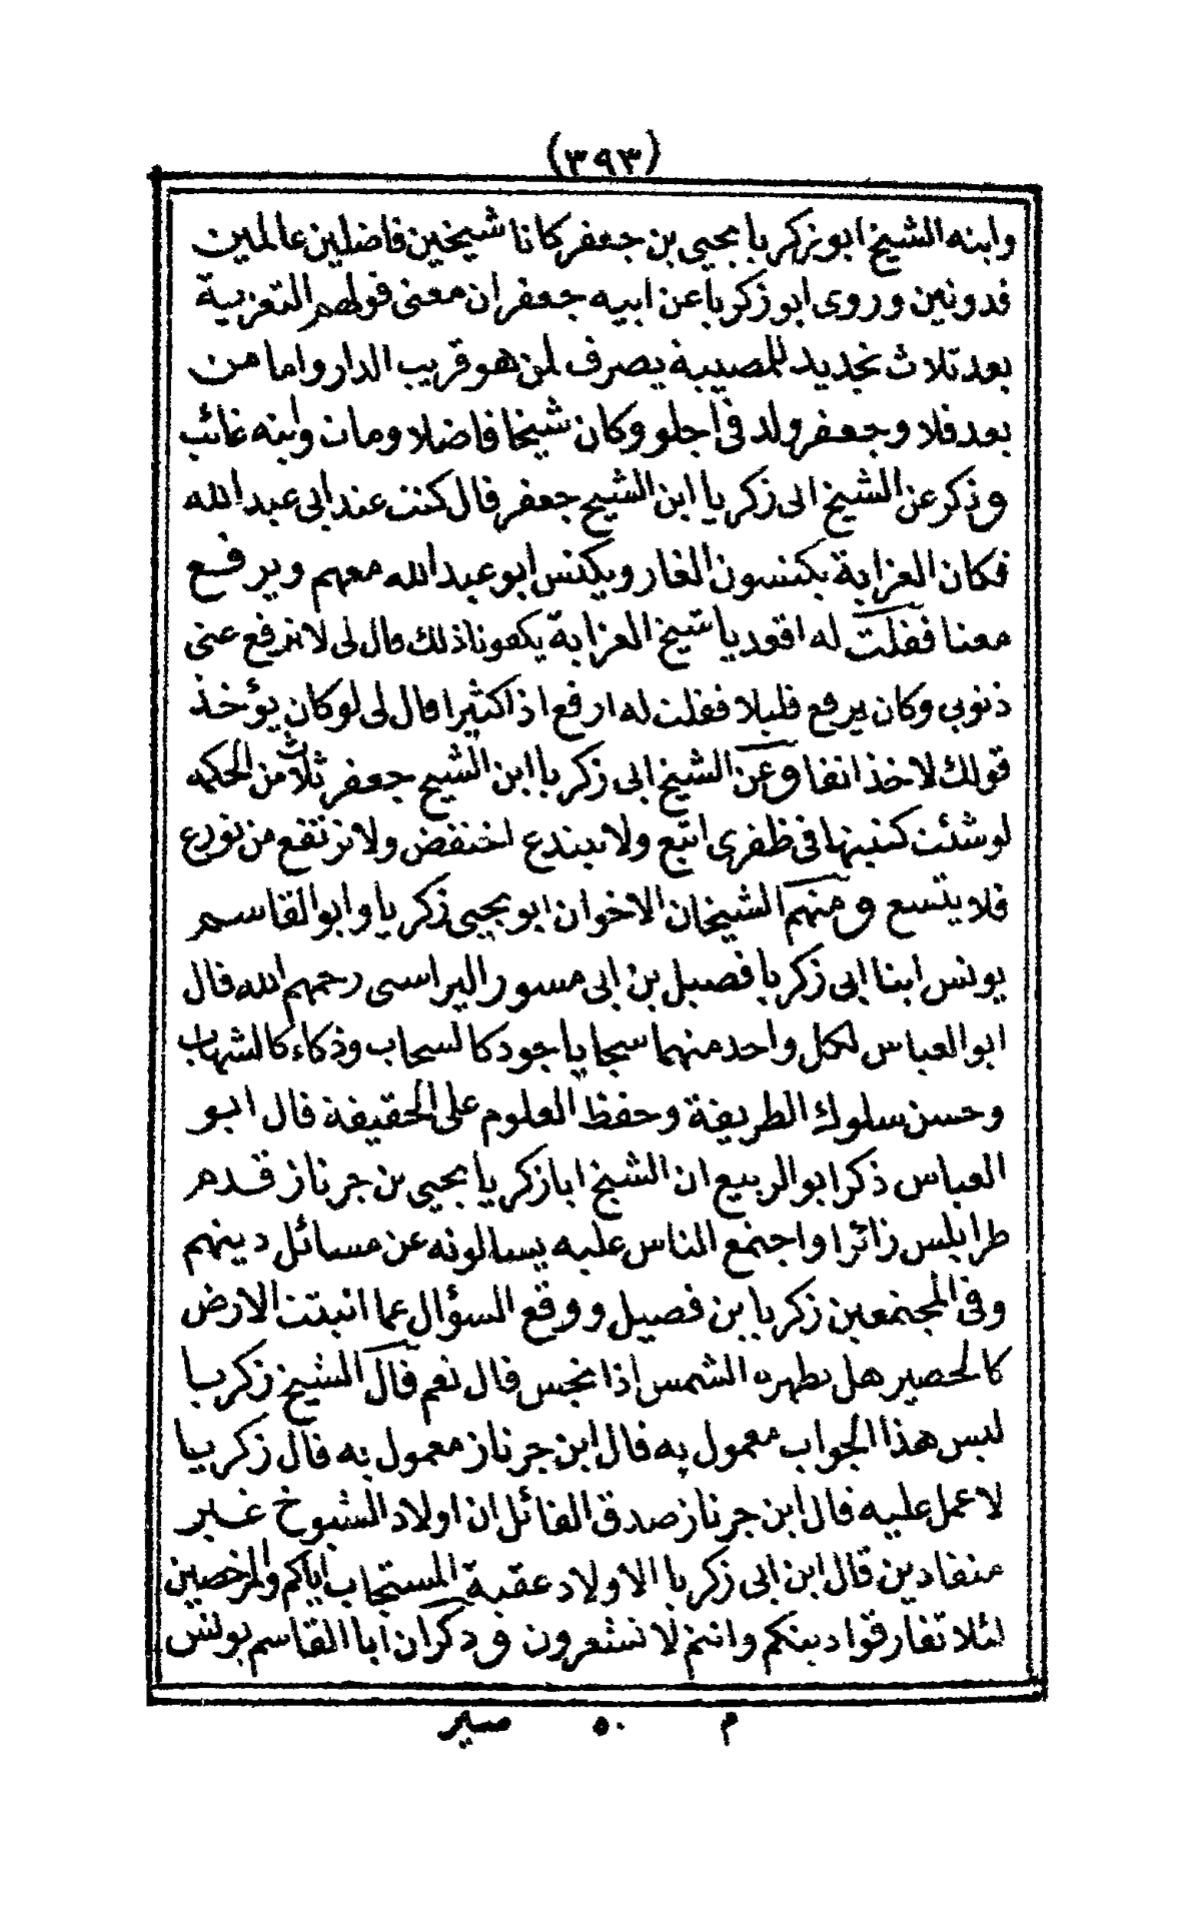 (٣٩٣)
وابنه الشيخ ابو زكريا يحيى بن جعفر كانا شيخين فاضلين عالمين
قدوتين وروى ابو زكريا عن ابيه جعفر ان معنى قولهم التعزية
بعد ثلاث تجديد للمصيبة يصرف لمن هو قريب الدار واما من
بعد فلا وجعفر ولد فى اجلو وكان شيخا فاضلا ومات وابنه غائب
وذكر عن الشيخ ابى زكريا ابن الشيخ جعفر قال كنت عند ابى عبد الله
فكان العزابة يكنسون الغار ويكنس ابو عبد الله معهم ويرفع
معنا فقلت له اقعد يا شيخ العزابة يكفونا ذلك قال لى لا ترفع عنى
ذنوبى وكان يرفع قليلا فقلت له ارفع اذا كثيرا قال لى لو كان يؤخذ
قولك لاخذ انفا وعن الشيخ ابى زكريا ابن الشيخ جعفر ثلاث من الحكمه
لو شئت كتبتها فى ظفرى اتبع ولا تبتدع اختفض ولا ترتفع من تورع
فلا يتسع ومنهم الشيخان الاخوان ابو يحيى زكريا وابو القاسم
يونس ابنا ابى زكريا فصيل بن ابى مسور اليراسى رحمهم الله قال
ابو العباس لكل واحد منهما سجايا جود كالسحاب وذكاء كالشهاب
وحسن سلوك الطريقة وحفظ العلوم على الحقيقة قال ابو
العباس ذكر ابو الربيع ان الشيخ ابا زكريا يحيى بن جرناز قدم
طرابلس زائرا واجتمع الناس عليه يسالونه عن مسائل دينهم
وفى المجتمعين زكريا بن فصيل ووقع السؤال عما انبتت الارض
كالحصير هل تطهره الشمس اذا نجس قال نعم قال الشيخ زكريا
ليس هذا الجواب معمول به قال ابن جرناز معمول به قال زكريا
لا عمل عليه قال ابن جرناز صدق القائل ان اولاد الشيوخ غير
منقادين قال ابن ابى زكريا الاولاد عقبة المستجاب اياكم والمرخصين
لئلا تفارقوا دينكم وانتم لا تشعرون وذكر ان ابا القاسم يونس
م ٥٠ سير